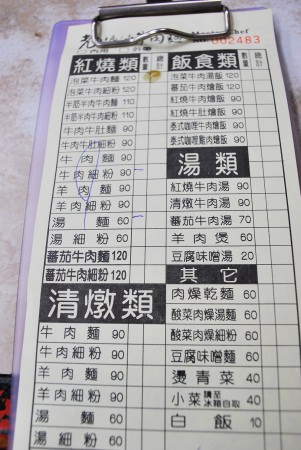 002483
紅燒類 數量 總計
泡菜牛肉麵 120
泡菜牛肉細粉 120
半筋半肉牛肉麵 110
半筋半肉牛肉細粉 110
牛肉牛肚麵 90
牛肉牛肚細粉 90
牛肉麵 90
牛肉細粉 90
羊肉麵 90
羊肉細粉 90
湯麵 60
湯細粉 60
蕃茄牛肉麵 120
蕃茄牛肉細粉 120
清燉類
牛肉麵 90
牛肉細粉 90
羊肉麵 90
羊肉細粉 90
湯麵 60
湯細粉 60
飯食類 數量 總計
泡菜牛肉湯飯 120
蕃茄牛肉燴飯 120
紅燒牛肉燴飯 90
紅燒牛肚燴飯 90
泰式咖哩牛肉燴飯 90
泰式咖哩雞肉燴飯 90
湯類
紅燒牛肉湯 90
清燉牛肉湯 90
蕃茄牛肉湯 70
羊肉煲 60
豆腐味噌湯 20
其它
肉燥乾麵 60
酸菜肉燥湯麵 60
酸菜肉燥細粉 60
豆腐味噌麵 60
燙青菜 40
小菜 請至冰箱自取 40
白飯 10